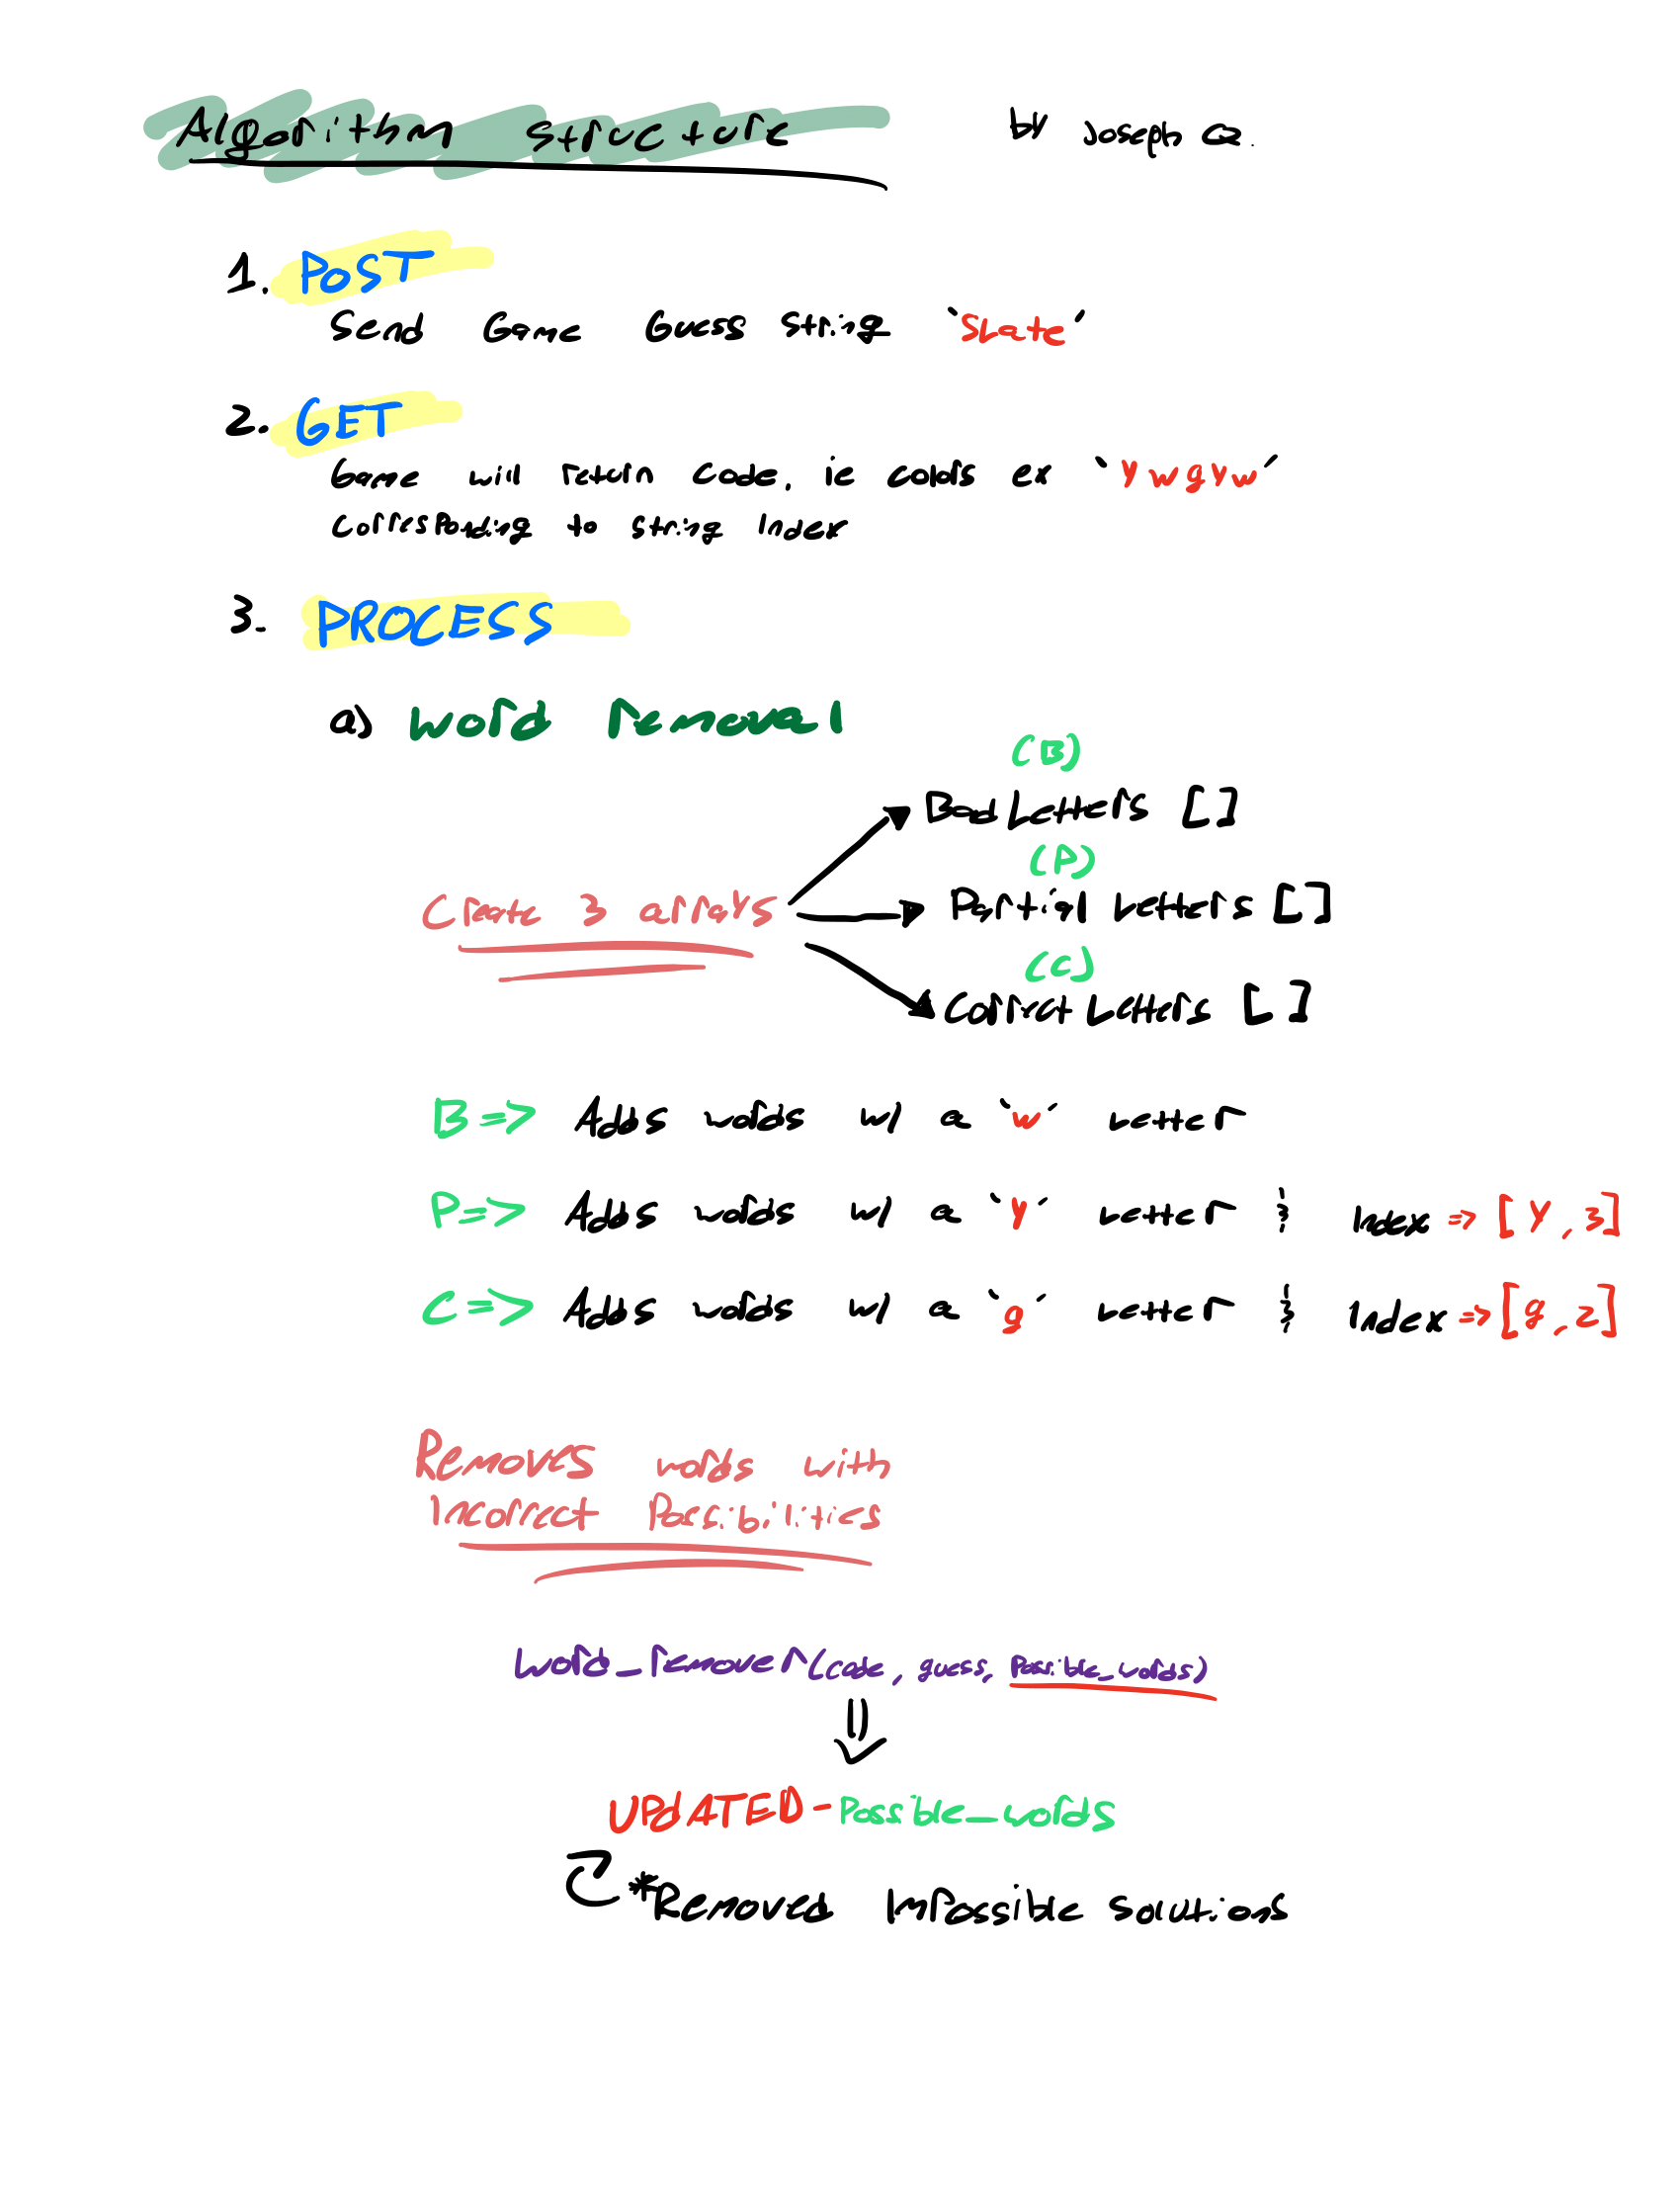 Algorithm structure by Joseph Cz.
1. POST
Send Game Guess string `Slate'
2. GET
Game will return code, ie colors ex `ywgyw'
corresponding to string index
3. PROCESS
a) word removal
(B)
Bad Letters []
(P)
Create 3 arrays Partial Letters []
(C)
Correct Letters []
B => Adds words w/ a `w' letter
P => Adds words w/ a `y' letter & Index => [y,3]
C => Adds words w/ a `g' letter & Index => [g,2]
Removes words with
Incorrect Possibilities
word_remover(code, guess, Possible_words)
UPdATED-Possible_words
*Removed Impossible solutions